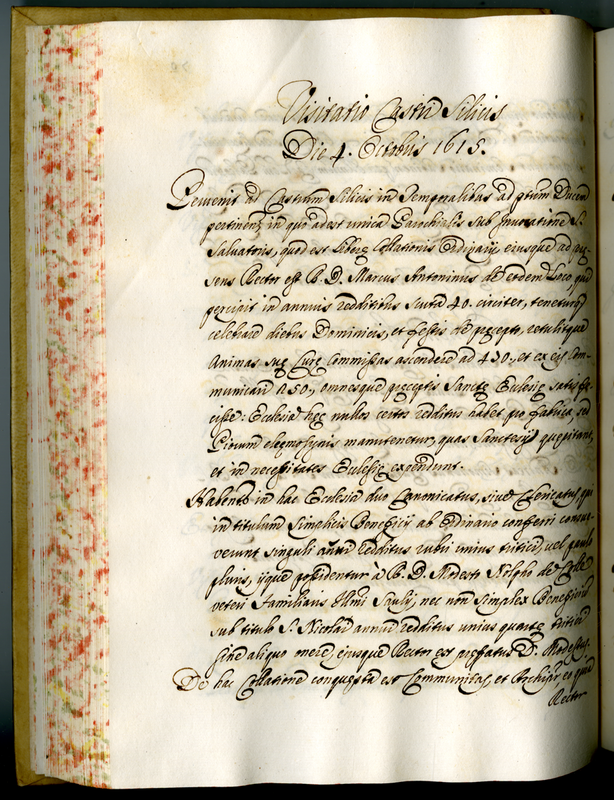 Visitatio Castri Silicis
Die 4. Octobris 1615.
Pervenit ad Castrum Silicis in Temporalibus ad ptum Ducem
pertinens in quo adest unica Parochialis sub Invocatione S.
Salvatoris, quod est libere Collationis Ordinarii eiusque ad
sens Rector est R. D. Marcus Antoninus de eodem Loco, qui
percipit in annuis redditibus scuta 40. circiter, teneturque
celebrare diebus Dominicis, et festis de precepto, retulitque
Animas suę Curę Commissas ascendere ad 430., et ex eis Com-
municari 250., omnesque pręceptis Sanctę Ecclesię satisfe-
cisse: Ecclesia hęc nullos certos redditus habet pro fabrica, sed
Piorum eleemosynis manutenetur, quas Sanctesii quęritant,
et in necessitates Ecclesię expendunt.
Habentur in hac Ecclesia duo Canonicatus, sive Clericatus, qui
in titulum simplicis Beneficii ab Ordinario conferri consue-
verunt singuli annui redditus rubii unius tritici, vel paulo
pluris, iique possidentur à R. D. Modesto de Colle
veteri familiaris Illmi Sauli, nec non simplex Beneficium
sub titulo S. Nicolai annui redditus unius quartę tritici
sine aliquo onere, eiusque Rector est pręfatus D. Modestus.
De hac Collatione conquęsta est Communitas, et Archipr eo quod
Rector